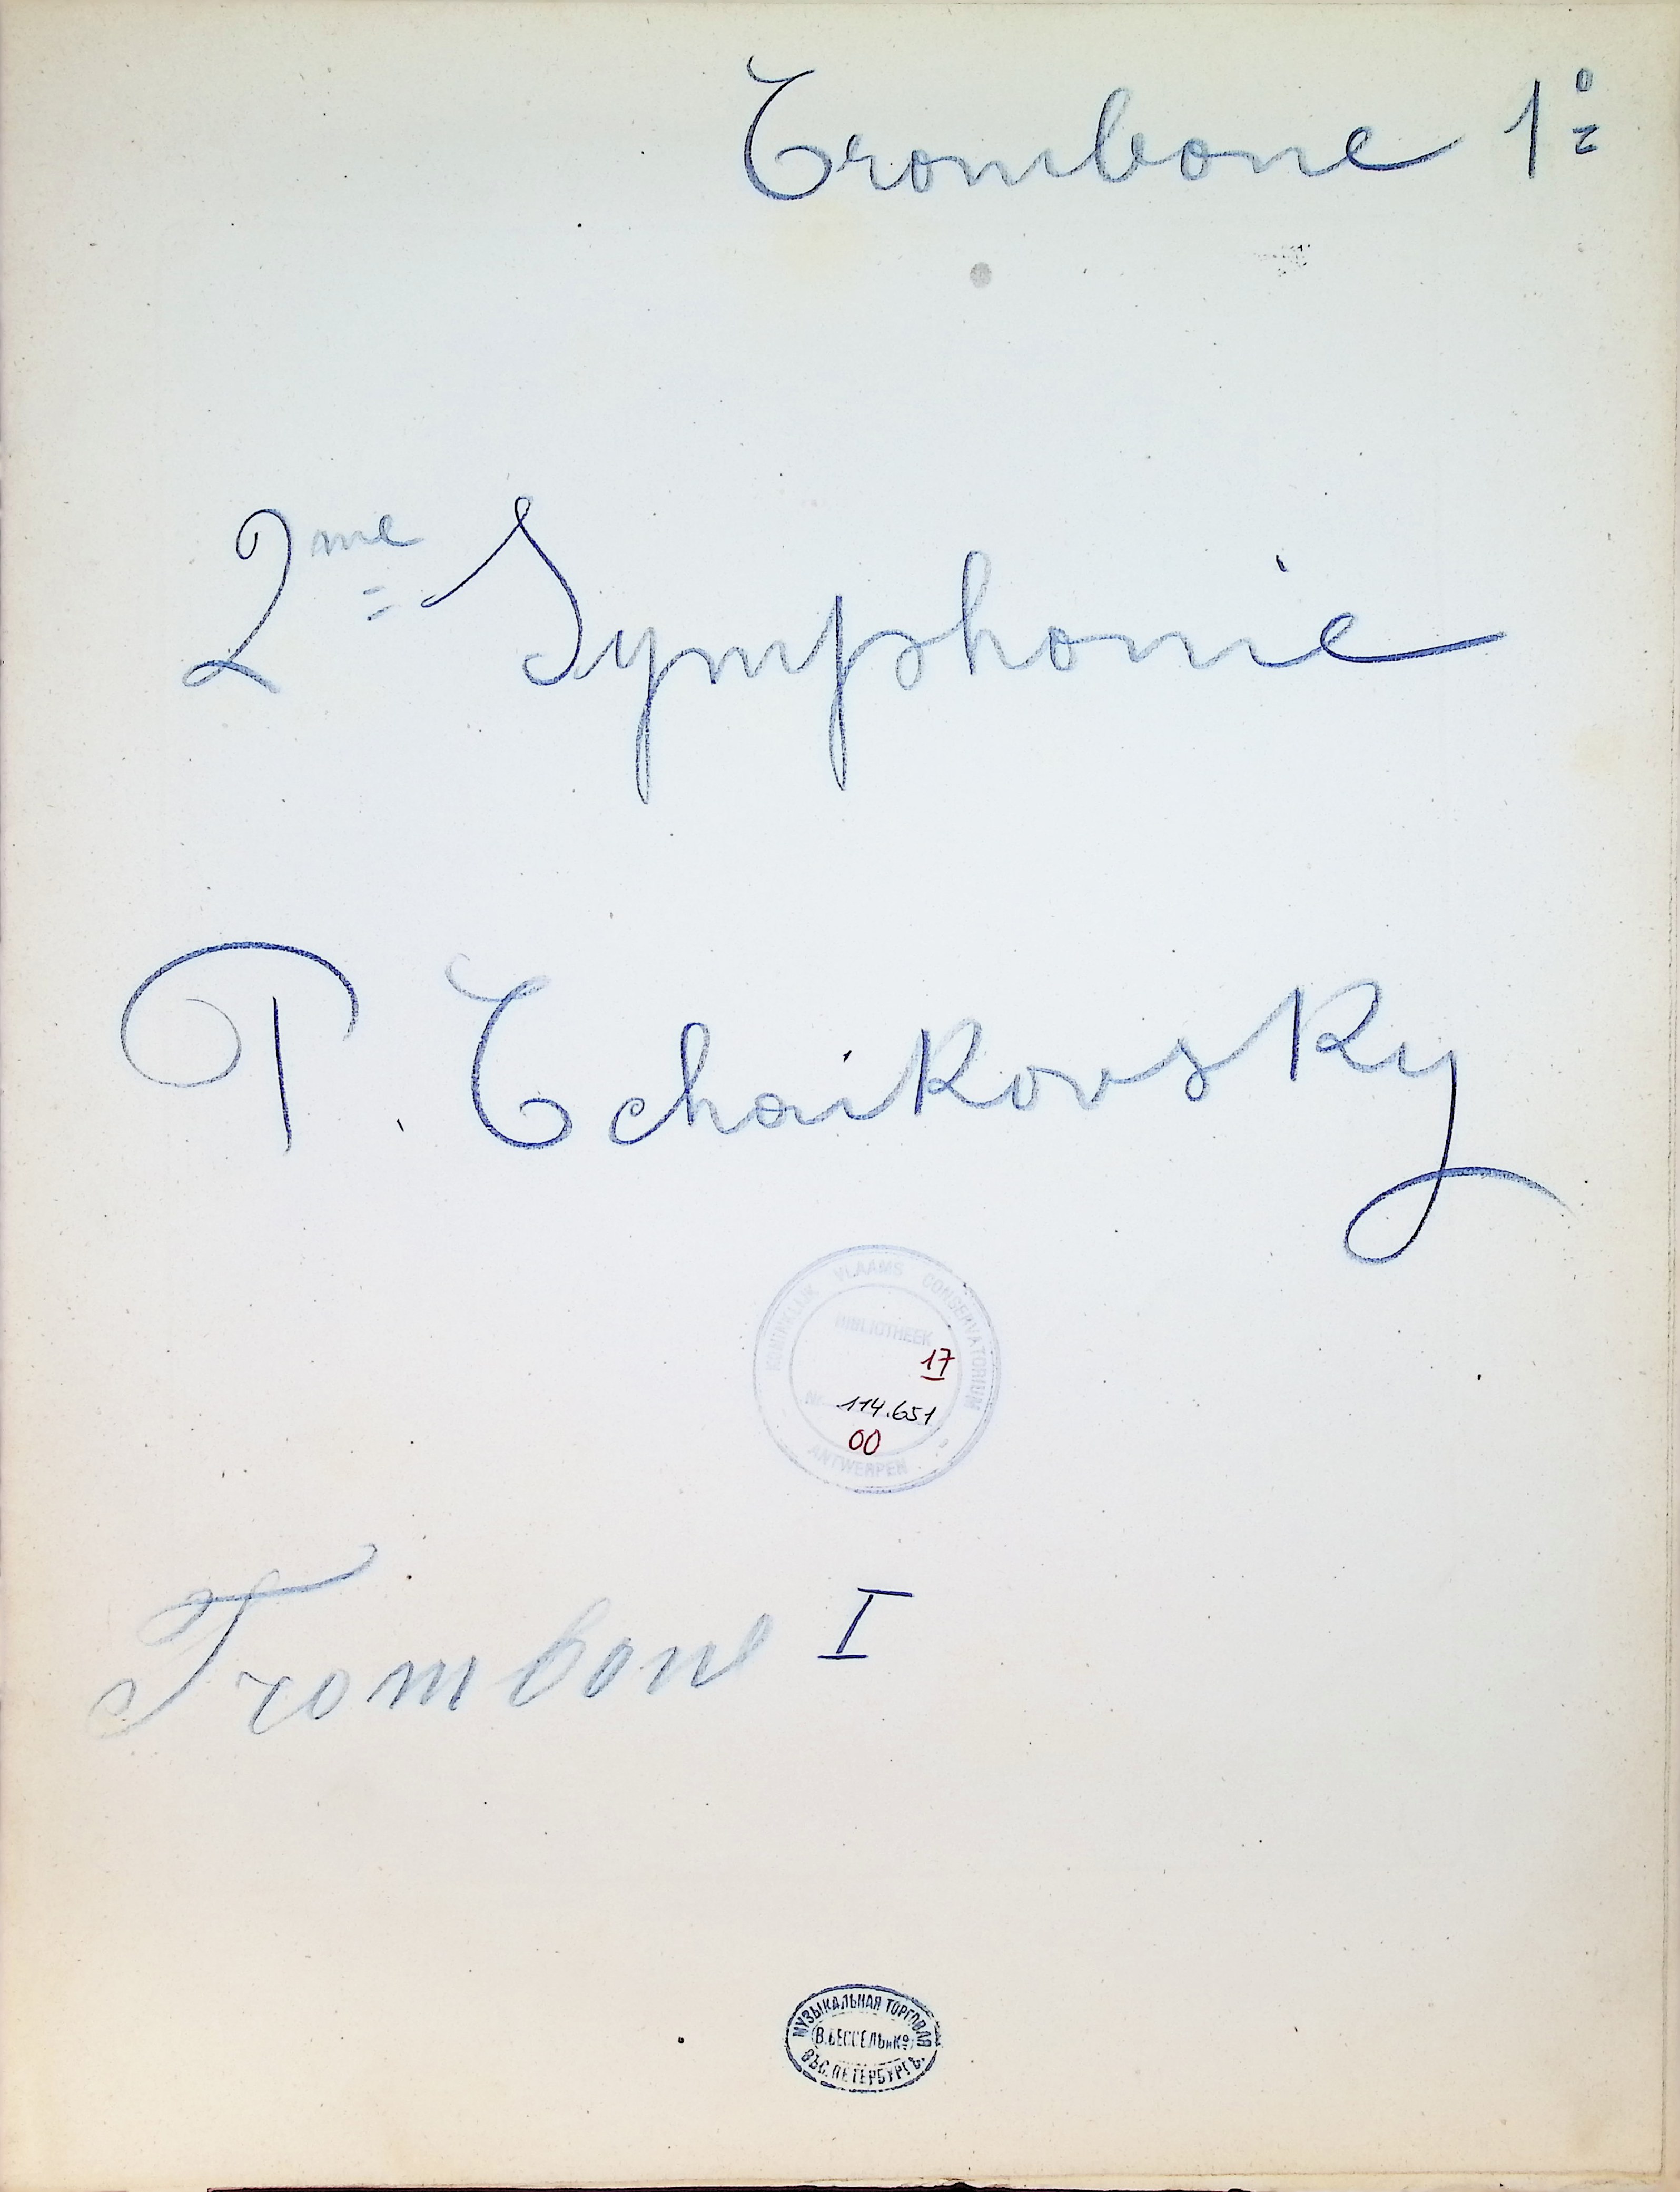 Trombone 1º
2me Symphonie
P. Tchaikovsky
KONINKLIJK VLAAMS CONSERVATORIUM
BIBLIOTHEEK
17
114.651
00
ANTWERPEN
Trombone I
МУЗЫКАЛЬНАЯ ТОРГОВЛЯ
В. БЕССЕЛЬ и Кº
ВЪ С. ПЕТЕРБУРГѢ.